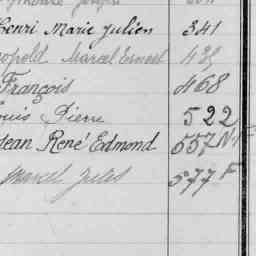 Henri Marie Julien 341
Léopold Marcel Ernest
François 468
Louis Pierre 522
Jean René Edmond 557 N
Marcel Jules 577 F